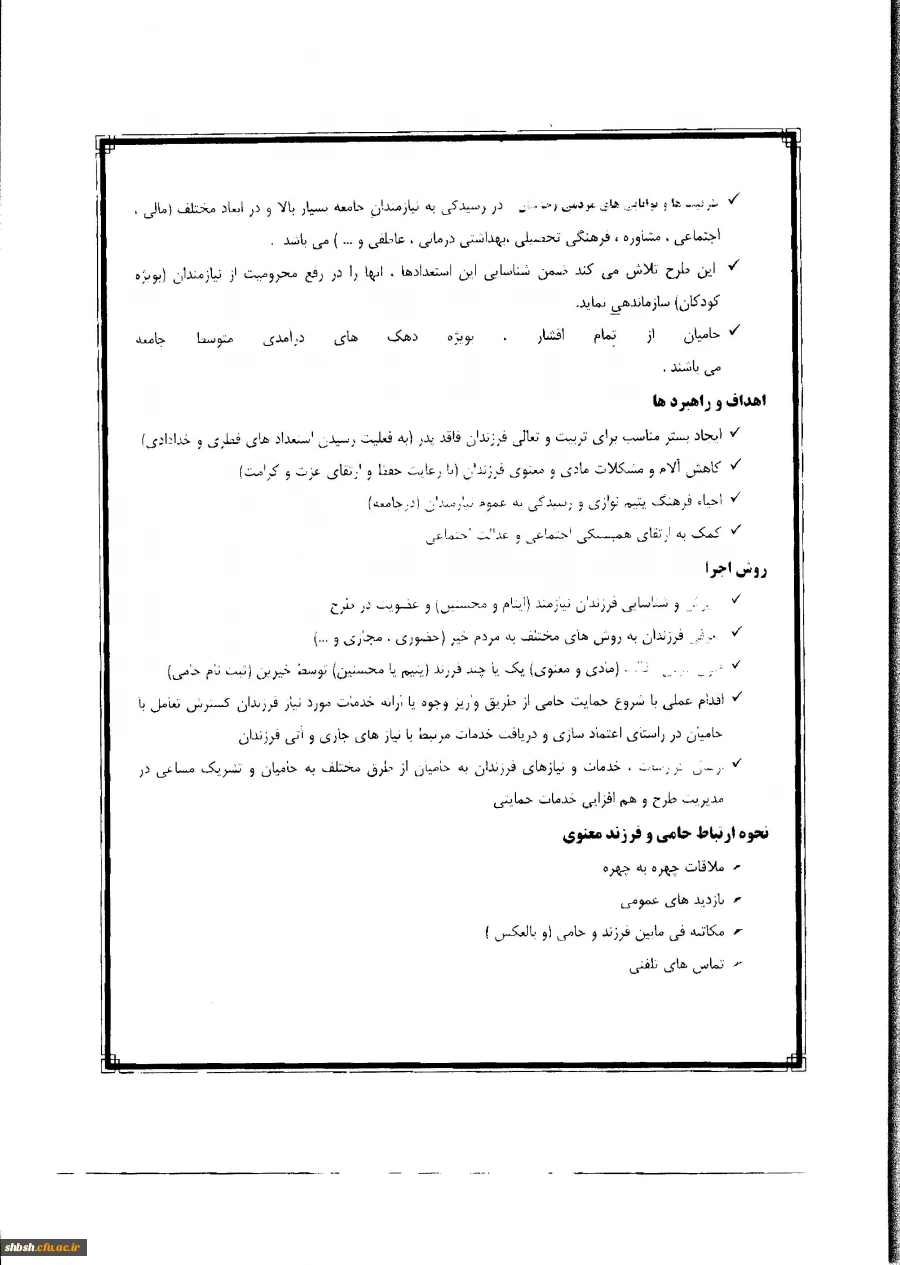 ✓ ظرفیت ها و توانایی های مردمی در رسیدگی به نیازمندان جامعه بسیار بالا و در ابعاد مختلف (مالی ،
اجتماعی ، مشاوره ، فرهنگی تحصیلی ،بهداشتی درمانی ، عاطفی و ... ) می باشد .
✓ این طرح تلاش می کند ضمن شناسایی این استعدادها ، آنها را در رفع محرومیت از نیازمندان (بویژه
کودکان) سازماندهی نماید.
✓ حامیان از تمام اقشار ، بویژه دهک های درآمدی متوسط جامعه
می باشند .
اهداف و راهبرد ها
✓ ایجاد بستر مناسب برای تربیت و تعالی فرزندان فاقد پدر (به فعلیت رسیدن استعداد های فطری و خدادادی)
✓ کاهش آلام و مشکلات مادی و معنوی فرزندان (با رعایت حفظ و ارتقای عزت و کرامت)
✓ احیاء فرهنگ یتیم نوازی و رسیدگی به عموم نیازمندان (درجامعه)
✓ کمک به ارتقای همبستگی اجتماعی و عدالت اجتماعی
روش اجرا
✓ و شناسایی فرزندان نیازمند (ایتام و محسنین) و عضویت در طرح
✓ معرفی فرزندان به روش های مختلف به مردم خیر (حضوری ، مجازی و ...)
✓ (مادی و معنوی) یک یا چند فرزند (یتیم یا محسنین) توسط خیرین (ثبت نام حامی)
✓ اقدام عملی با شروع حمایت حامی از طریق واریز وجوه یا ارائه خدمات مورد نیاز فرزندان گسترش تعامل با
حامیان در راستای اعتماد سازی و دریافت خدمات مرتبط با نیاز های جاری و آتی فرزندان
✓ ، خدمات و نیازهای فرزندان به حامیان از طرق مختلف به حامیان و تشریک مساعی در
مدیریت طرح و هم افزایی خدمات حمایتی
نحوه ارتباط حامی و فرزند معنوی
- ملاقات چهره به چهره
- بازدید های عمومی
- مکاتبه فی مابین فرزند و حامی (و بالعکس )
- تماس های تلفنی
shbsh.cfu.ac.ir